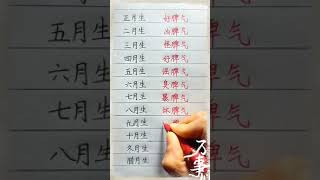 正月生 好脾气
二月生 凶脾气
三月生 怪脾气
四月生 好脾气
五月生 怪脾气
六月生 臭脾气
七月生 暴脾气
八月生 坏脾气
九月生
十月生
冬月生
腊月生
五月生
六月生
七月生
八月生
万事